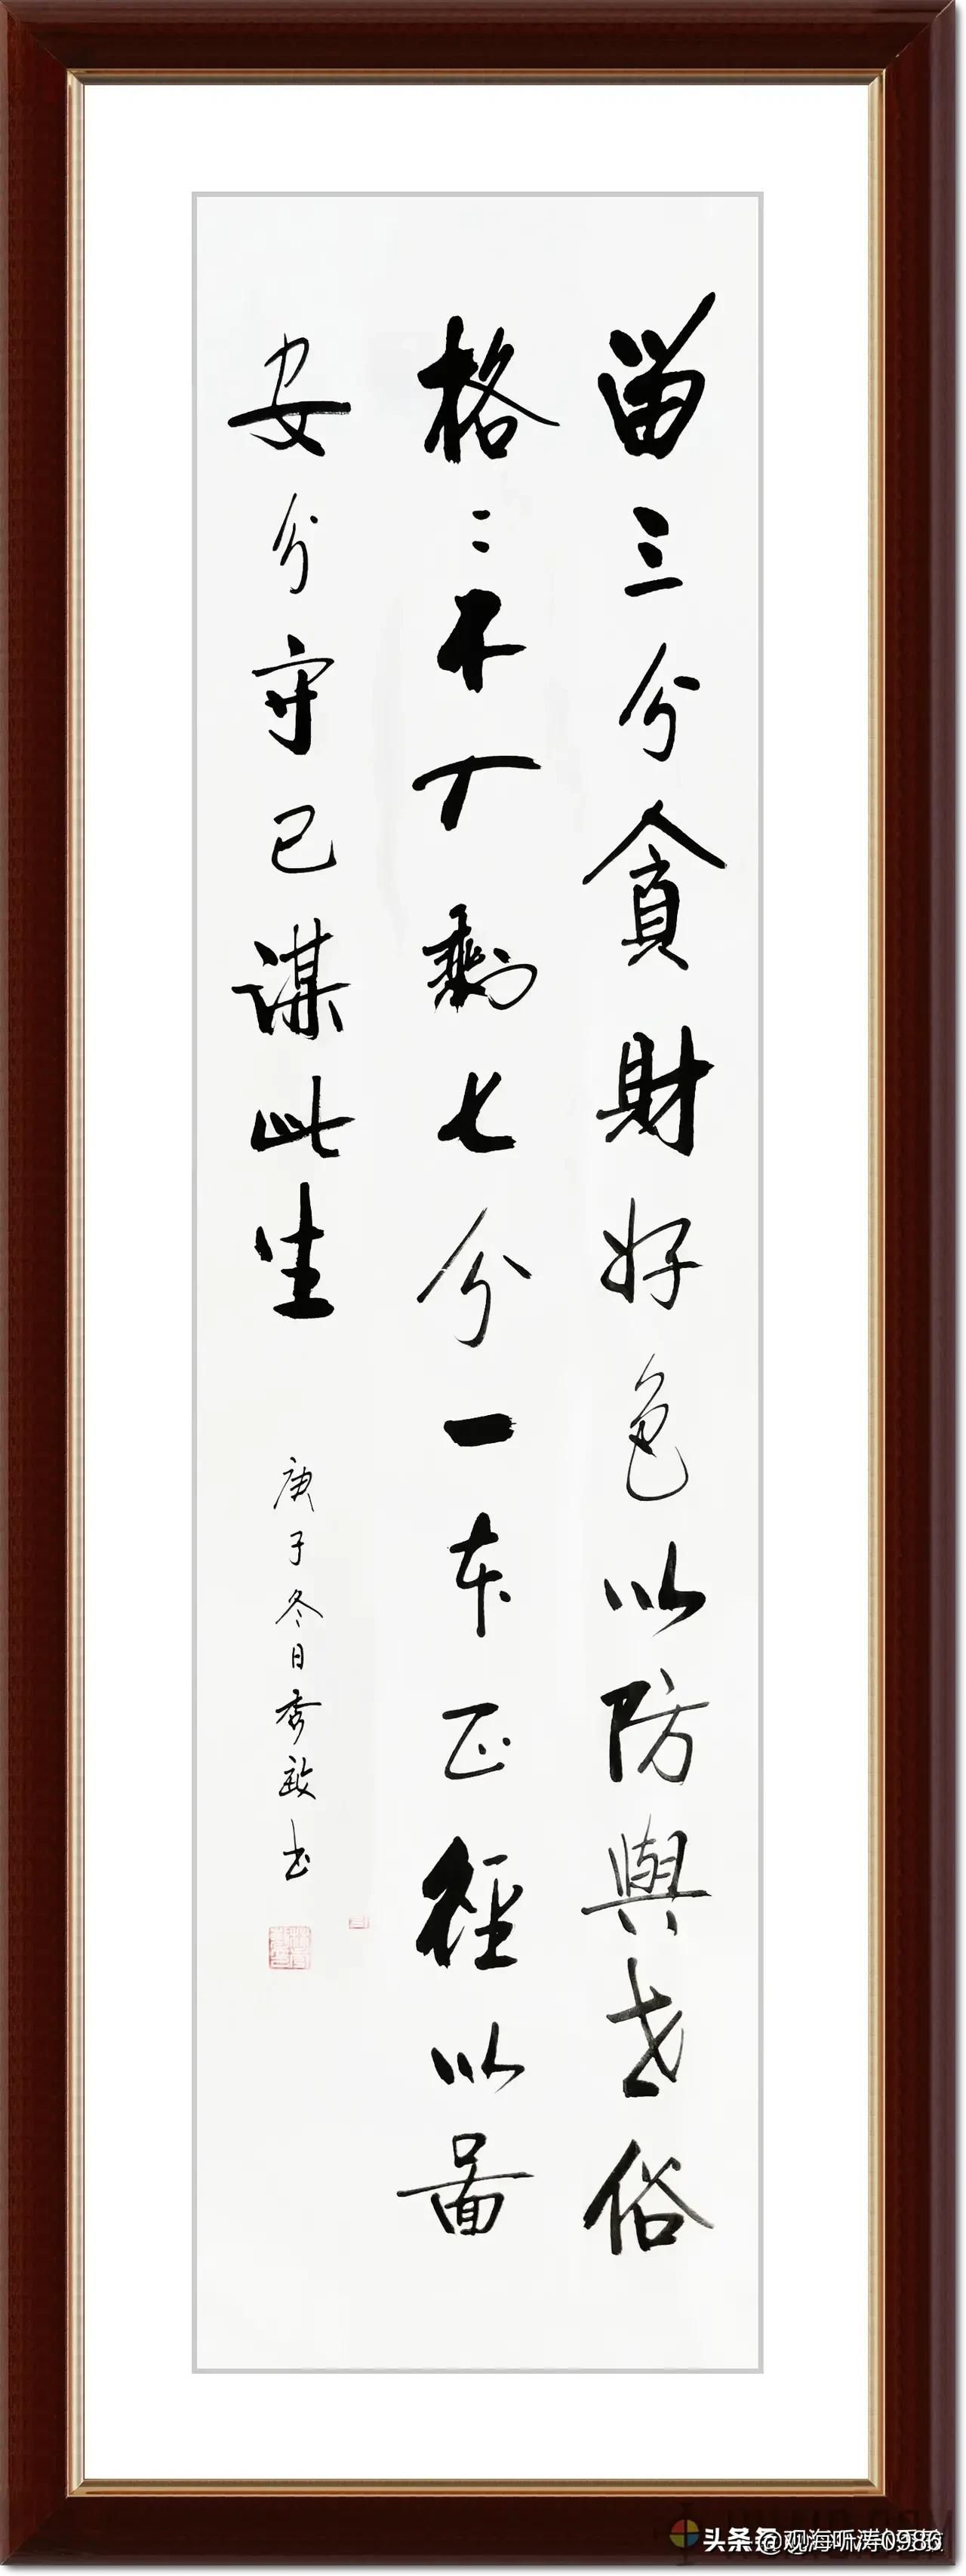 留三分貪財好色以防與世俗
格〻不入剩七分一本正徑以啚
安分守己謀此生
庚子冬日秀书
头条 @观海听涛0986